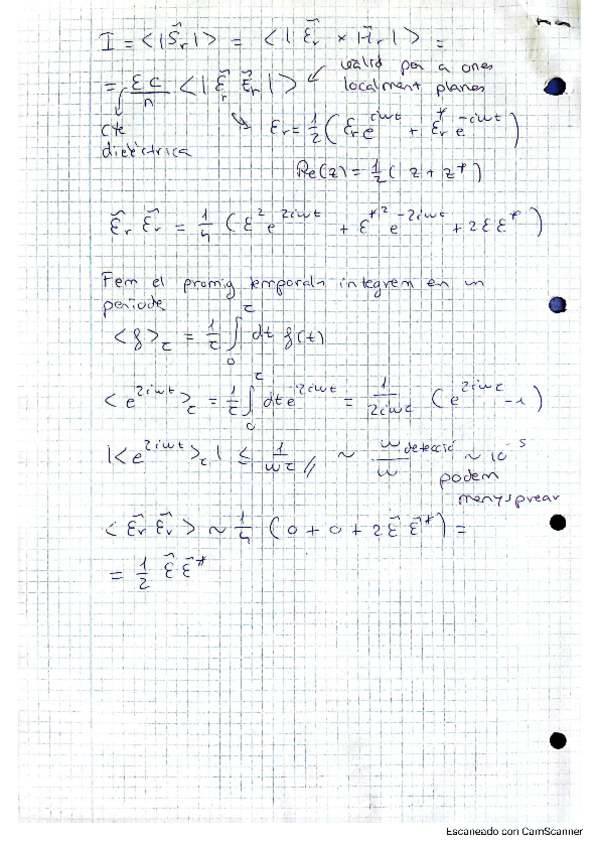 I = <|S⃗ᵣ|> = <|ℰ⃗ᵣ × H⃗ᵣ|> =
= εc/n <|ℰ⃗ᵣ ℰ⃗ᵣ|> ↙ vàlid per a ones
localment planes
cte
dielèctrica
ℰᵣ = 1/2 (ℰᵣ e^{iωt} + ℰᵣ* e^{-iωt})
Re(z) = 1/2 (z + z*)
ℰ⃗ᵣ ℰ⃗ᵣ = 1/4 (ℰ² e^{2iωt} + ℰ*² e^{-2iωt} + 2ℰℰ*)
Fem el promig temporal integrem en un
període
<f>_τ = 1/τ ∫₀^τ dt f(t)
<e^{2iωt}>_τ = 1/τ ∫₀^τ dt e^{i2ωt} = 1/2iωτ (e^{2iωτ} - 1)
|<e^{2iωt}>_τ| ≤ 1/ωτ // ~ ω detecció/ω ~ 10^{-5}
podem
menysprear
<ℰ⃗ᵣ ℰ⃗ᵣ> ~ 1/4 (0 + 0 + 2ℰ⃗ ℰ⃗*) =
= 1/2 ℰ⃗ ℰ⃗*
Escaneado con CamScanner